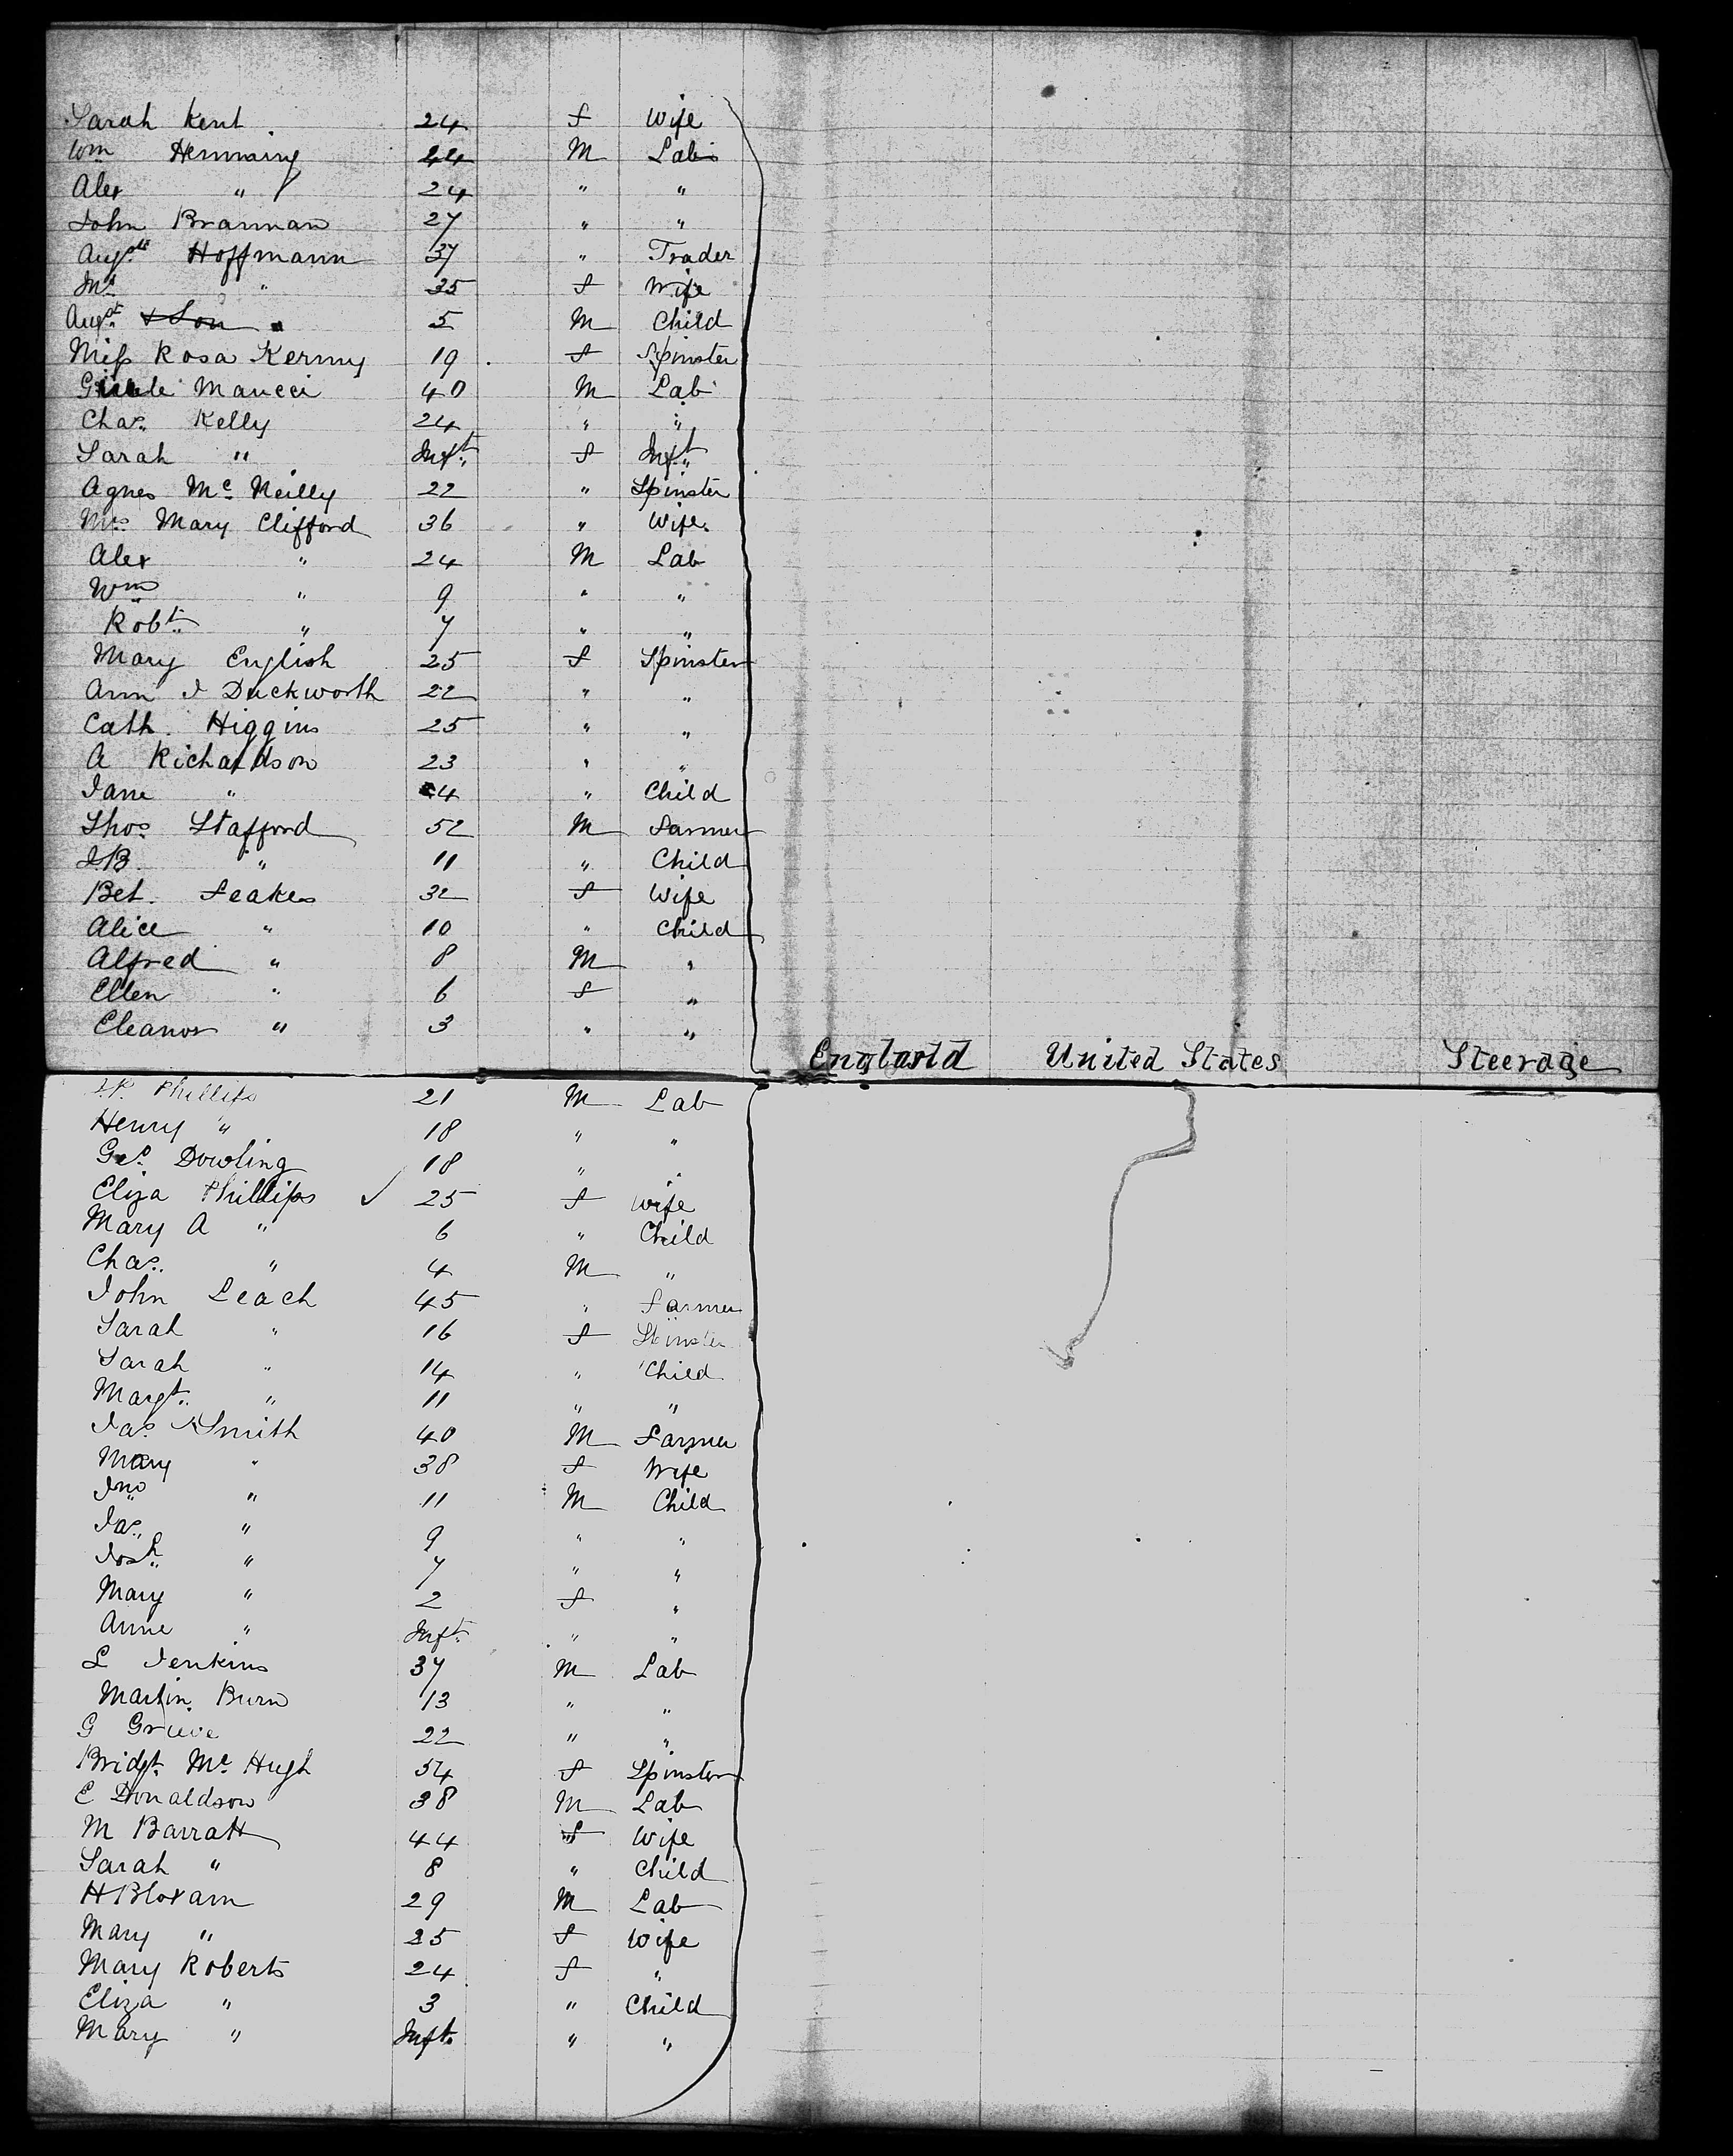 Sarah Kent 24 f Wife
Wm Hemming 24 M Lab
Alex " 24 " "
John Brannan 27 " "
Hoffmann 37 " Trader
" 35 f Wife
Augst " 5 M Child
Miss Rosa Kermy 19 f Spinster
Maucci 40 M Lab
Chas. Kelly 24 " "
Sarah " Inft. f Inft.
Agnes Mc Neilly 22 " Spinster
Mrs Mary Clifford 36 " Wife
Alex " 24 M Lab
Wm " 9 " "
Robt. " 7 " "
Mary English 25 f Spinster
Ann J Duckworth 22 " "
Cath. Higgins 25 " "
A Richardson 23 " "
Jane " 4 " Child
Thos. Stafford 52 M Farmer
J.B. " 11 " Child
Bet. Feakes 32 f Wife
Alice " 10 " Child
Alfred " 8 M "
Ellen " 6 f "
Eleanor " 3 " "
England United States Steerage
J.P. Phillips 21 M Lab
Henry " 18 " "
Geo. Dowling 18 " "
Eliza Phillips ✓ 25 f Wife
Mary A " 6 " Child
Chas. " 4 M "
John Leach 45 " Farmer
Sarah " 16 f Spinster
Sarah " 14 " Child
Margt. " 11 " "
Jas. Smith 40 M Farmer
Mary " 38 f Wife
Jno " 11 M Child
Jas. " 9 " "
Josh. " 7 " "
Mary " 2 f "
Anne " Inft. " "
L Jenkins 37 M Lab
Martin Burn 13 " "
G Grieve 22 " "
Bridgt. Mc Hugh 54 f Spinster
E Donaldson 38 M Lab
M Barratt 44 f Wife
Sarah " 8 " Child
H Bloxam 29 M Lab
Mary " 25 f Wife
Mary Roberts 24 f "
Eliza " 3 " Child
Mary " Inft. " "